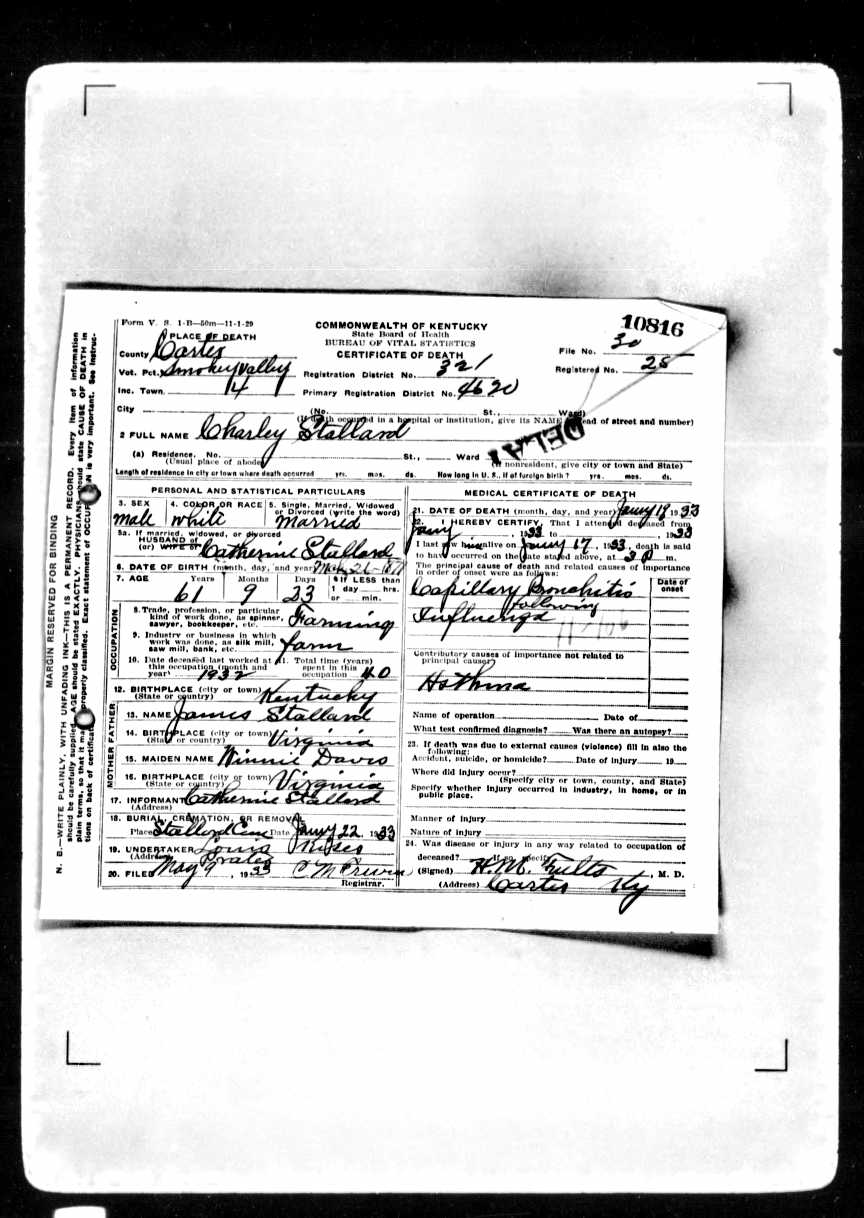 Form V. S. 1-B—50m—11-1-29
COMMONWEALTH OF KENTUCKY
State Board of Health
BUREAU OF VITAL STATISTICS
CERTIFICATE OF DEATH
10816
File No. 30
Registered No. 28
1 PLACE OF DEATH
County Carter
Vot. Pct. Smokey Valley
Registration District No. 321
Inc. Town 14
Primary Registration District No. 4620
City (No. St., Ward)
(If death occurred in a hospital or institution, give its NAME instead of street and number)
2 FULL NAME Charley Stallard
DELAY
(a) Residence. No. St., Ward
(Usual place of abode) (If nonresident, give city or town and State)
Length of residence in city or town where death occurred yrs. mos. ds. How long in U. S., if of foreign birth? yrs. mos. ds.
PERSONAL AND STATISTICAL PARTICULARS
3. SEX 4. COLOR OR RACE 5. Single, Married, Widowed
or Divorced (write the word)
male White Married
5a. If married, widowed, or divorced
HUSBAND of
(or) WIFE of Catherine Stallard
6. DATE OF BIRTH (month, day, and year)
7. AGE Years Months Days If LESS than
1 day hrs.
or min.
61 9 23
OCCUPATION
8. Trade, profession, or particular
kind of work done, as spinner,
sawyer, bookkeeper, etc. Farming
9. Industry or business in which
work was done, as silk mill,
saw mill, bank, etc. farm
10. Date deceased last worked at 11. Total time (years)
this occupation (month and spent in this
year) 1932 occupation 40
12. BIRTHPLACE (city or town)
(State or country) Kentucky
FATHER
13. NAME James Stallard
14. BIRTHPLACE (city or town)
(State or country) Virginia
MOTHER
15. MAIDEN NAME Winnie Davis
16. BIRTHPLACE (city or town)
(State or country) Virginia
17. INFORMANT Catherine Stallard
(Address)
18. BURIAL, CREMATION, OR REMOVAL
Place Stallard Cem Date Jany 22 1933
19. UNDERTAKER Louis
(Address)
20. FILED May 9, 1933
Registrar.
MEDICAL CERTIFICATE OF DEATH
21. DATE OF DEATH (month, day, and year) Jany 19 1933
22. I HEREBY CERTIFY, That I attended deceased from
Jany, 1933 to , 1933
I last saw him alive on Jany 17, 1933, death is said
to have occurred on the date stated above, at m.
The principal cause of death and related causes of importance
in order of onset were as follows:
Date of
onset
Capillary Bronchitis
following
Influenza
Contributory causes of importance not related to
principal cause:
Asthma
Name of operation Date of
What test confirmed diagnosis? Was there an autopsy?
23. If death was due to external causes (violence) fill in also the
following:
Accident, suicide, or homicide? Date of injury 19
Where did injury occur?
(Specify city or town, county, and State)
Specify whether injury occurred in industry, in home, or in
public place.
Manner of injury
Nature of injury
24. Was disease or injury in any way related to occupation of
deceased? If so, specify
(Signed) H. M. Fults, M. D.
(Address) Carter Ky
MARGIN RESERVED FOR BINDING
N. B.—WRITE PLAINLY, WITH UNFADING INK—THIS IS A PERMANENT RECORD. Every item of information
should be carefully supplied. AGE should be stated EXACTLY. PHYSICIANS should state CAUSE OF DEATH in
plain terms, so that it may be properly classified. Exact statement of OCCUPATION is very important. See instruc-
tions on back of certificate.